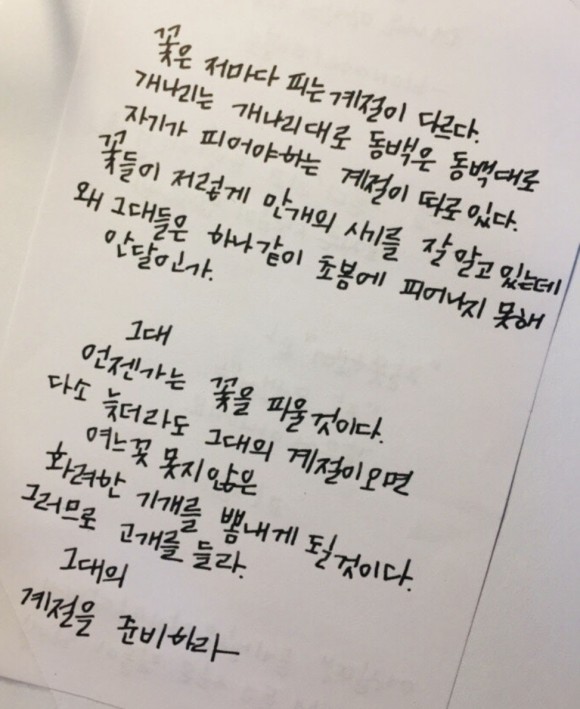 꽃은 저마다 피는 계절이 다르다.
개나리는 개나리대로 동백은 동백대로
자기가 피어야하는 계절이 따로있다.
꽃들이 저렇게 만개의 시기를 잘 알고 있는데
왜 그대들은 하나같이 초봄에 피어나지 못해
안달인가.
그대
언젠가는 꽃을 피울것이다.
다소 늦더라도 그대의 계절이오면
여느꽃 못지않은
화려한 기개를 뽐내게 될것이다.
그러므로 고개를 들라.
그대의
계절을 준비하라